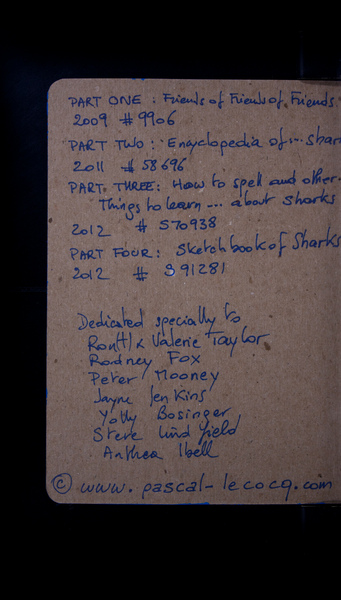 PART ONE : Friends of Friends of Friends.
2009 # 9906
PART TWO : Encyclopedia of ... shar
2011 # 58696
PART THREE: How to spell and other.
Things to learn ... about sharks
2012 # 570938
PART FOUR : Sketchbook of Sharks
2012 # 591281
Dedicated specially to
Valerie Taylor
Rodney Fox
Peter Mooney
Jayne Jenkins
Yolly Bosinger
Steve Lindfield
Anthea Ibell
© www.pascal-lecocq.com